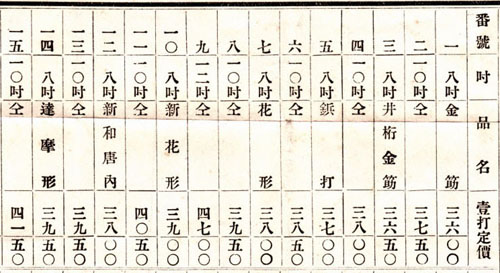 番號 吋 品名 壹打定價
一 八吋 金筋 三六〇〇
二 一〇吋 仝 三七五〇
三 八吋 井桁金筋 三六五〇
四 一〇吋 仝 三八〇〇
五 八吋 鋲打 三七〇〇
六 一〇吋 仝 三八五〇
七 八吋 花形 三八〇〇
八 一〇吋 仝 三九五〇
九 一二吋 仝 四七〇〇
一〇 八吋 新花形 三九〇〇
一一 一〇吋 仝 四〇五〇
一二 八吋 新和唐内 三八〇〇
一三 一〇吋 仝 三九五〇
一四 八吋 達摩形 三九五〇
一五 一〇吋 仝 四一五〇